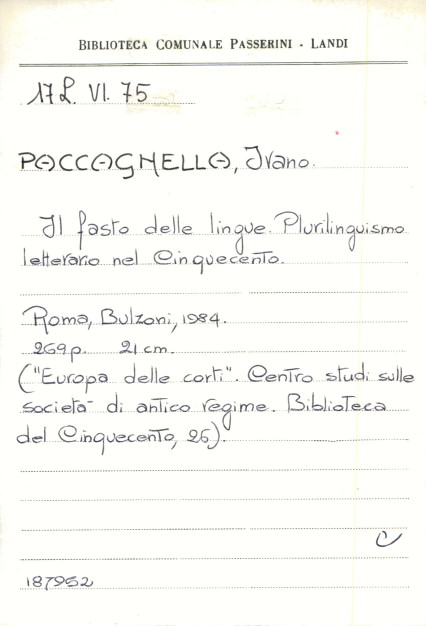 BIBLIOTECA COMUNALE PASSERINI - LANDI
17 L. VI. 75
PACCAGNELLA, Ivano.
Il fasto delle lingue. Plurilinguismo
letterario nel Cinquecento.
Roma, Bulzoni, 1984.
269 p. 21 cm.
("Europa delle corti". Centro studi sulle
società di antico regime. Biblioteca
del Cinquecento, 26).
C
187952